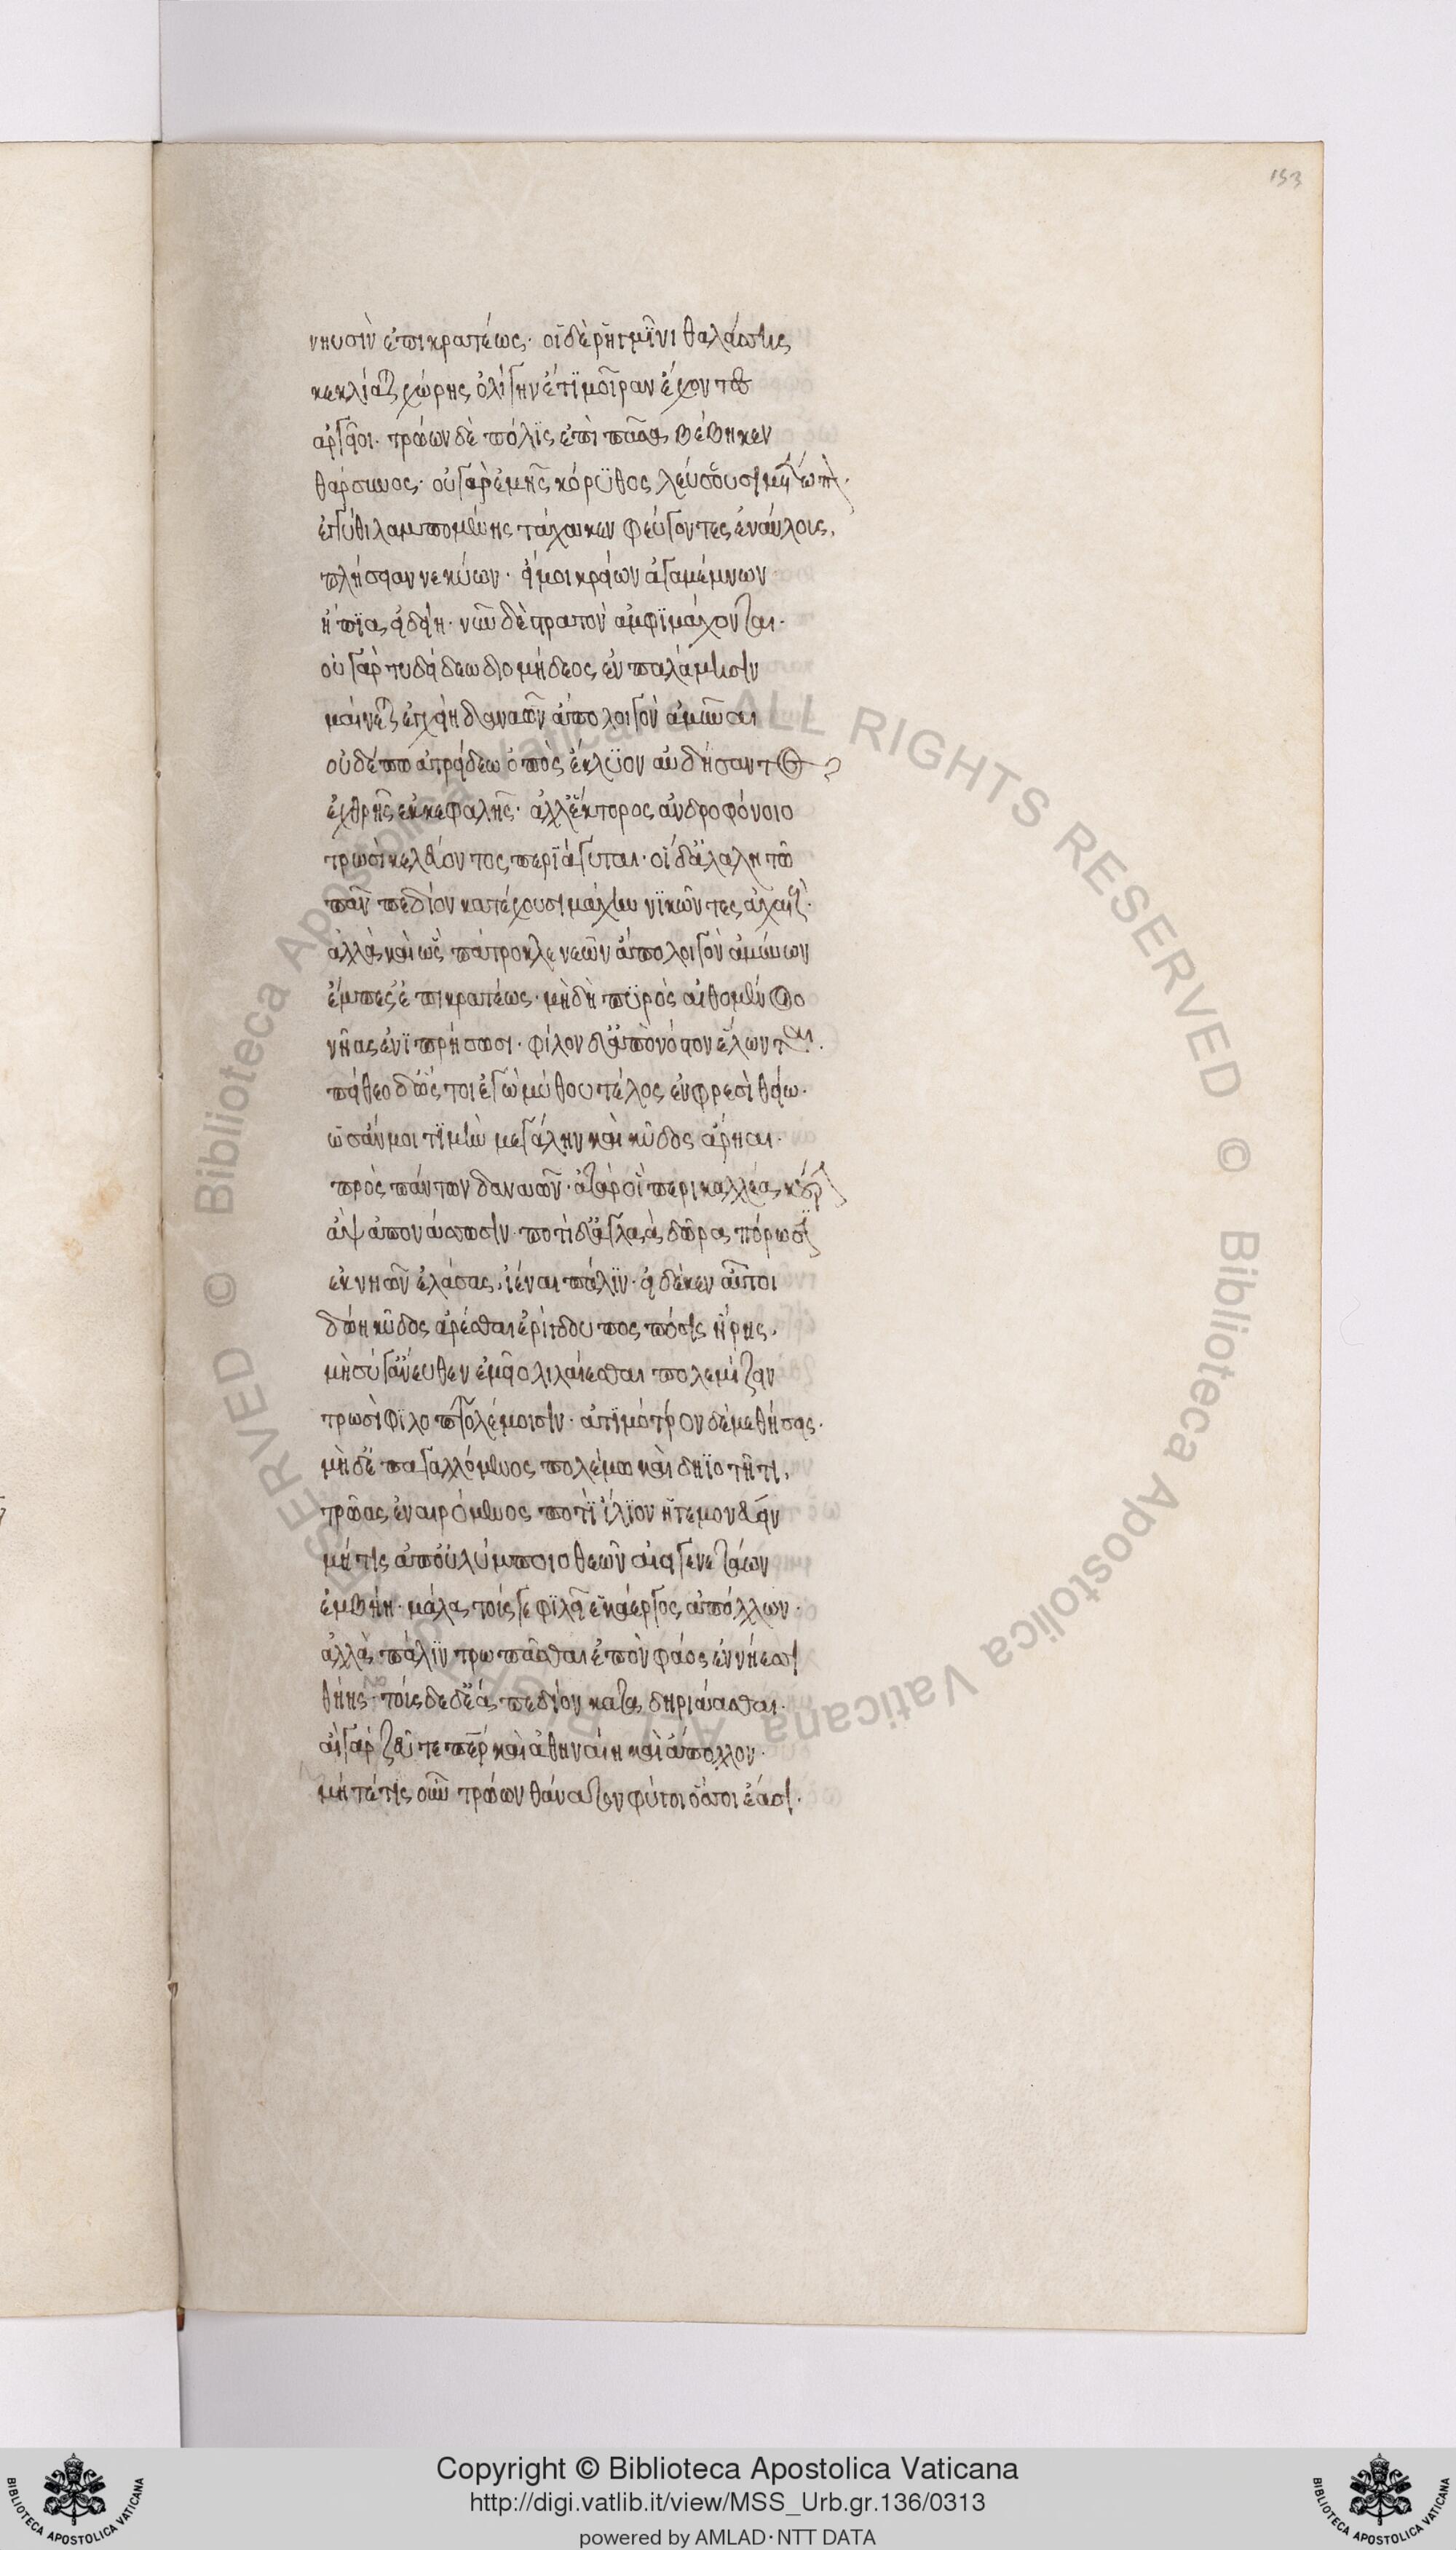 153
νηυσὶν ἐπικρατέως· οἱ δὲ ῥηγμῖνι θαλάσσης
κεκλίαται χώρης ὀλίγην ἔτι μοῖραν ἔχοντες
ἀργεῖοι· τρώων δὲ πόλις ἐπὶ πᾶσα βέβηκεν
θάρσυνος· οὐ γὰρ ἐμῆς κόρυθος λεύσσουσι μέτωπον·
ἐγγύθι λαμπομένης τάχα κεν φεύγοντες ἐναύλους,
πλήσειαν νεκύων· εἴ μοι κρείων ἀγαμέμνων
ἤπια εἰδείη· νῦν δὲ στρατὸν ἀμφιμάχονται·
οὐ γὰρ τυδείδεω διομήδεος ἐν παλάμησιν
μαίνεται ἐγχείη δαναῶν ἀπὸ λοιγὸν ἀμῦναι
οὐδέ πω ἀτρείδεω ὀπὸς ἔκλυον αὐδήσαντος
ἐχθρῆς ἐκ κεφαλῆς· ἀλλ' ἕκτορος ἀνδροφόνοιο
τρωσὶ κελεύοντος περιάγνυται· οἱ δ' ἀλαλητῶ
πᾶν πεδίον κατέχουσι μάχη νικῶντες ἀχαιούς·
ἀλλὰ καὶ ὣς πάτροκλε νεῶν ἄπο λοιγὸν ἀμύνων
ἔμπεσ' ἐπικρατέως· μὴ δὴ πυρὸς αἰθομένοιο
νῆας ἐνιπρήσωσι· φίλον δ' ἀπὸ νόστον ἕλωνται.
πείθεο δ' ὥς τοι ἐγὼ μύθου τέλος ἐν φρεσὶ θείω·
ὡς ἄν μοι τιμὴν μεγάλην καὶ κῦδος ἄρηαι·
πρὸς πάντων δαναῶν· ἀτὰρ οἳ περικαλλέα κούρην
ἂψ ἀπονάσσωσιν· ποτὶ δ' ἀγλαὰ δῶρα πόρωσιν
ἐκ νηῶν ἐλάσας, ἰέναι πάλιν· εἰ δέ κεν αὖ τοι
δώη κῦδος ἀρέσθαι ἐρίγδουπος πόσις ἥρης,
μὴ σύ γ' ἄνευθεν ἐμεῖο λιλαίεσθαι πολεμίζειν
τρωσὶ φιλοπτολέμοισιν· ἀτιμότερον δέ με θήσεις·
μὴ δ' ἐπαγαλλόμενος πολέμω καὶ δηϊοτῆτι,
τρῶας ἐναιρόμενος ποτὶ ἴλιον ἡγεμονεύειν
μή τις ἀπ' οὐλύμποιο θεῶν αἰειγενετάων
ἐμβήη· μάλα τούς γε φιλεῖ ἑκάεργος ἀπόλλων·
ἀλλὰ πάλιν τρωπᾶσθαι ἐπὴν φάος ἐν νήεσσι
θήης· τοὺς δέ δ' ἐᾶν πεδίον κάτα δηριάασθαι·
αἲ γὰρ ζεῦ τε πάτερ καὶ ἀθηναίη καὶ ἄπολλον·
μήτέ τις οὖν τρώων θάνατον φύγοι ὅσσοι ἔασι·
Copyright © Biblioteca Apostolica Vaticana
http://digi.vatlib.it/view/MSS_Urb.gr.136/0313
powered by AMLAD·NTT DATA